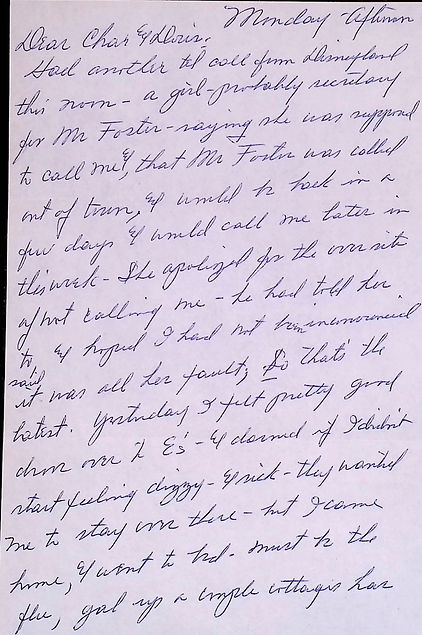 Monday - Afternoon
Dear Char & Doris,
Had another tel call from Disneyland
this noon - a girl - probably secretary
for Mr Foster - saying she was supposed
to call me &, that Mr Foster was called
out of town, & would be back in a
few days & would call me later in
this week - She apologized for the over site
of not calling me - he had told her
to & hoped I had not been inconvenienced
said it was all her fault, So that's the
latest. Yesterday I felt pretty good
drove over to E's - & darned if I didn't
start feeling dizzy - & sick - they wanted
me to stay over there - but I came
home, & went to bed - must be the
flu, gal up a couple cottages has